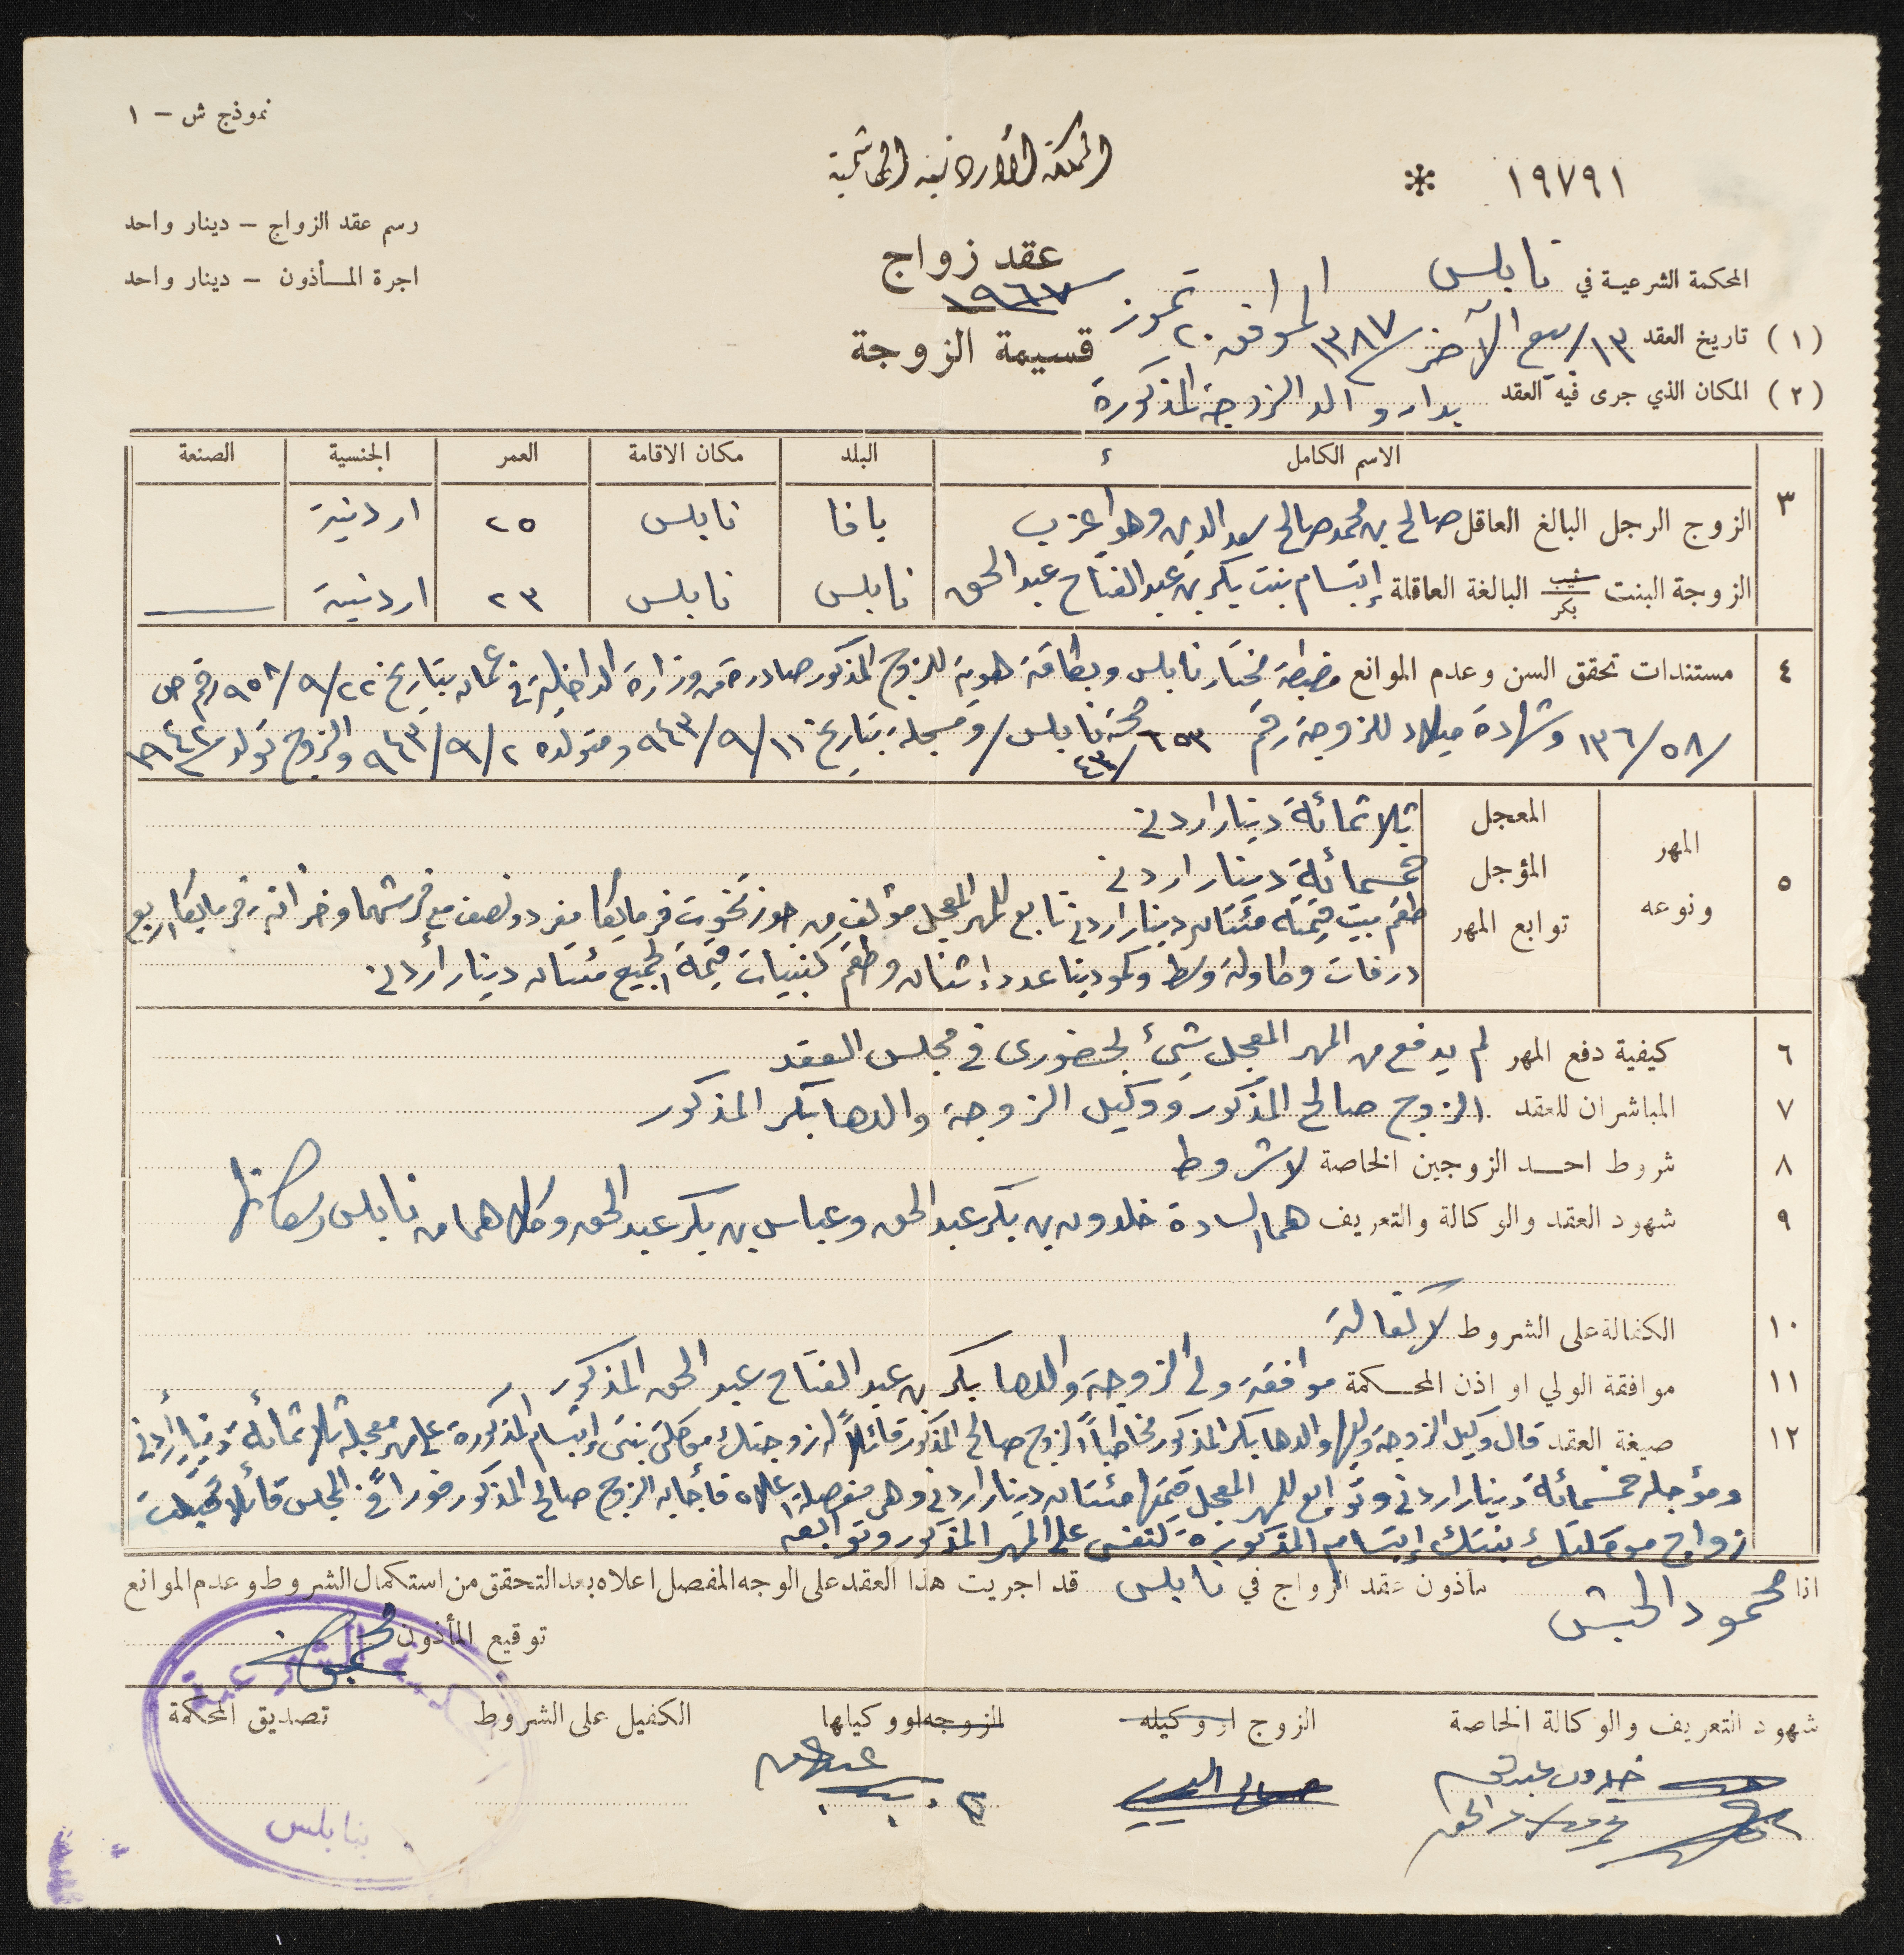 نموذج ش - ١
المملكة الأردنية الهاشمية
١٩٧٩١ *
رسم عقد الزواج - دينار واحد
اجرة المأذون - دينار واحد
عقد زواج
١٩٦٧
قسيمة الزوجة
المحكمة الشرعية في نابلس
(١) تاريخ العقد ١٣/ربيع الآخر/١٣٨٧ الموافق ٢٠ تموز
(٢) المكان الذي جرى فيه العقد بدار والد الزوجة المذكورة
٣ الاسم الكامل البلد مكان الاقامة العمر الجنسية الصنعة
الزوج الرجل البالغ العاقل صالح بن محمد صالح سعد الدين وهو أعزب يافا نابلس ٢٥ اردنية
الزوجة البنت ثيب بكر البالغة العاقلة إبتسام بنت بكر بن عبد الفتاح عبد الحق نابلس نابلس ٢٣ اردنية
٤ مستندات تحقق السن وعدم الموانع مضبطة مختار نابلس وبطاقة هوية للزوج المذكور صادرة من وزارة الداخلية في عمان بتاريخ ٢٢/٩/٩٥٨ رقم ص
/٥٨/١٣٦ وشهادة ميلاد للزوجة رقم ٦٥٣/٤٣ صحة نابلس/ومسجلة بتاريخ ١١/٩/٩٤٣ ومتولدة ٢/٩/٩٤٣ والزوج تولد ١٩٤٢
٥ المهر ونوعه
المعجل ثلاثمائة دينار اردني
المؤجل خمسمائة دينار اردني
توابع المهر طقم بيت قيمته مئتان دينار اردني تابع للمهر المعجل مؤلف من جوز تخوت فرمايكا مفرد ونصف مع فرشهما وخزانة فرمايكا اربع
درفات وطاولة وسط وكومدينا عدد إثنان وطقم كنبيات قيمة الجميع مئتان دينار أردني
٦ كيفية دفع المهر لم يدفع من المهر المعجل شيئ بحضوري في مجلس العقد
٧ المباشران للعقد الزوج صالح المذكور ووكيل الزوجة والدها بكر المذكور
٨ شروط احد الزوجين الخاصة لا شروط
٩ شهود العقد والوكالة والتعريف هما السادة خلدون بن بكر عبد الحق وعباس بن بكر عبد الحق وكلاهما من نابلس وسكانها
١٠ الكفالة على الشروط لا كفالة
١١ موافقة الولي او اذن المحكمة موافقة ولي الزوجة والدها بكر بن عبد الفتاح عبد الحق المذكور
١٢ صيغة العقد قال وكيل الزوجة وليها والدها بكر المذكور مخاطباً الزوج صالح المذكور قائلاً له زوجتك موكلتي بنتي إبتسام المذكورة على مهر معجله ثلاثمائة دينار أردني
ومؤجله خمسمائة دينار اردني وتوابع للمهر المعجل قيمتها مئتان دينار اردني وهي مفصلة اعلاه فأجابه الزوج صالح المذكور فوراً في المجلس قائلا قبلت
زواج موكلتك بنتك إبتسام المذكورة لنفسي على المهر المذكور وتوابعه
انا محمود الحبش مأذون عقد الزواج في نابلس قد اجريت هذا العقد على الوجه المفصل اعلاه بعد التحقق من استكمال الشروط وعدم الموانع
توقيع المأذون
شهود التعريف والوكالة الخاصة الزوج او وكيله الزوجه او وكيلها الكفيل على الشروط تصديق المحكمة
خلدون عبد الحق
الشرعية
بنابلس